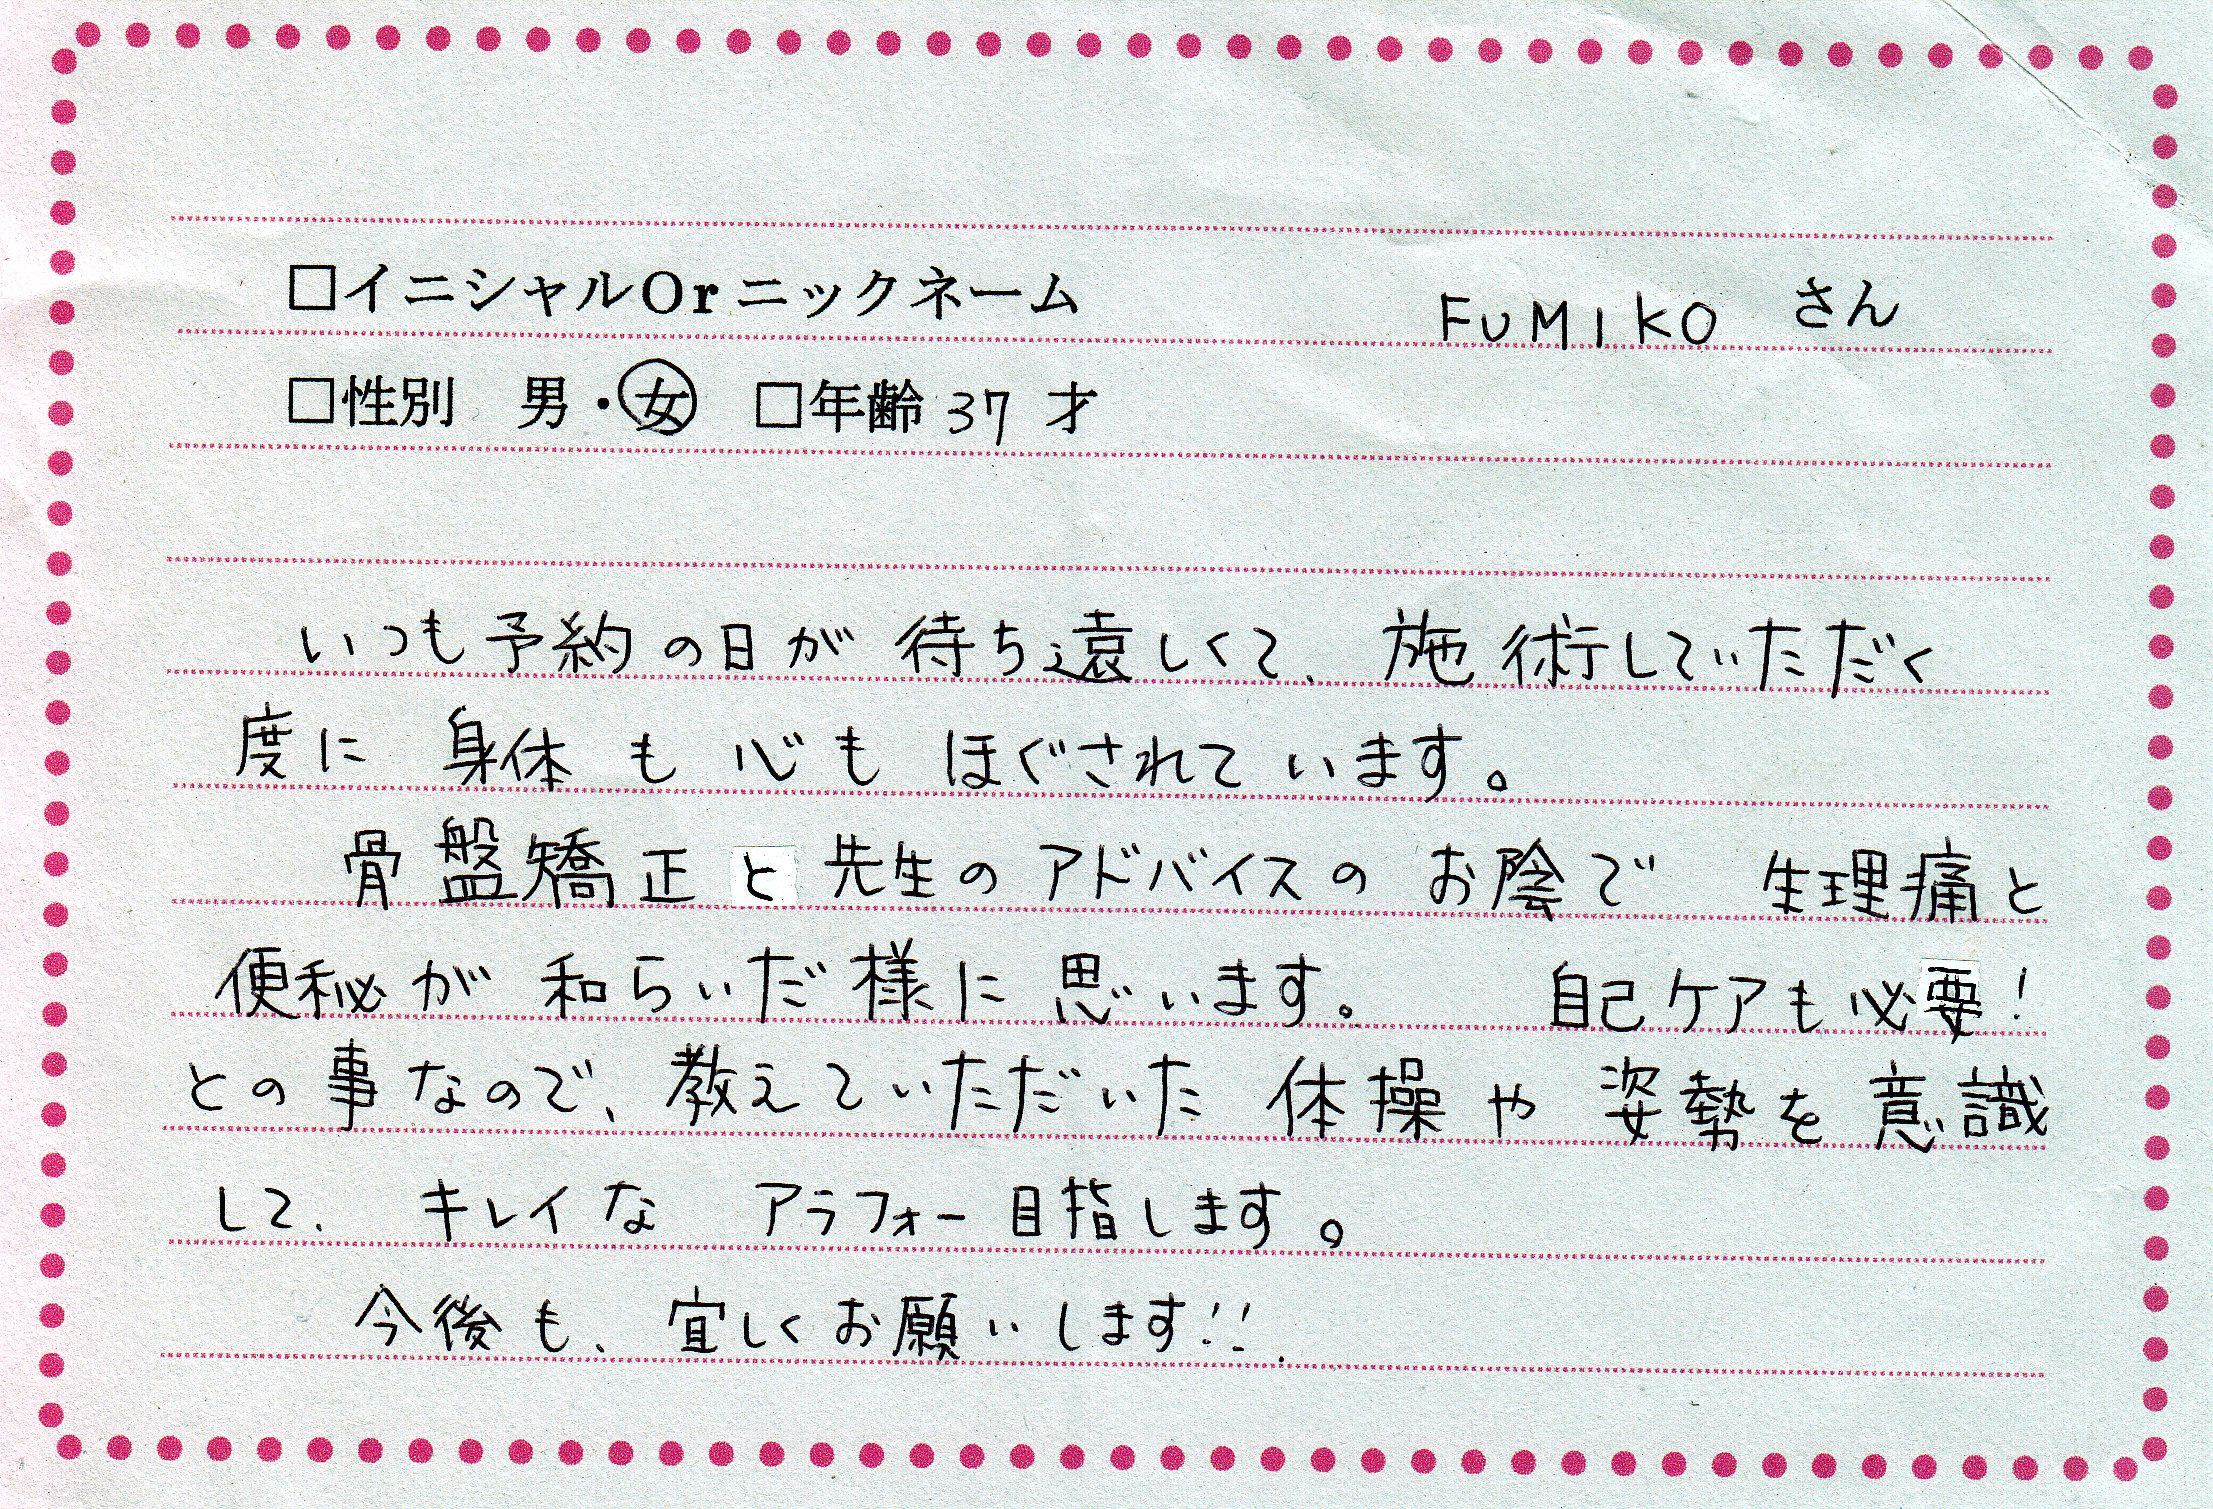 □イニシャルOrニックネーム　FUMIKO　さん
□性別　男・女　□年齢 37 才
いつも予約の日が待ち遠しくて、施術していただく
度に 身体も心も ほぐされています。
骨盤矯正と先生のアドバイスのお陰で 生理痛と
便秘が和らいだ様に思います。　自己ケアも必要!
との事なので、教えていただいた体操や姿勢を意識
して、キレイな アラフォー目指します。
今後も、宜しくお願いします!!